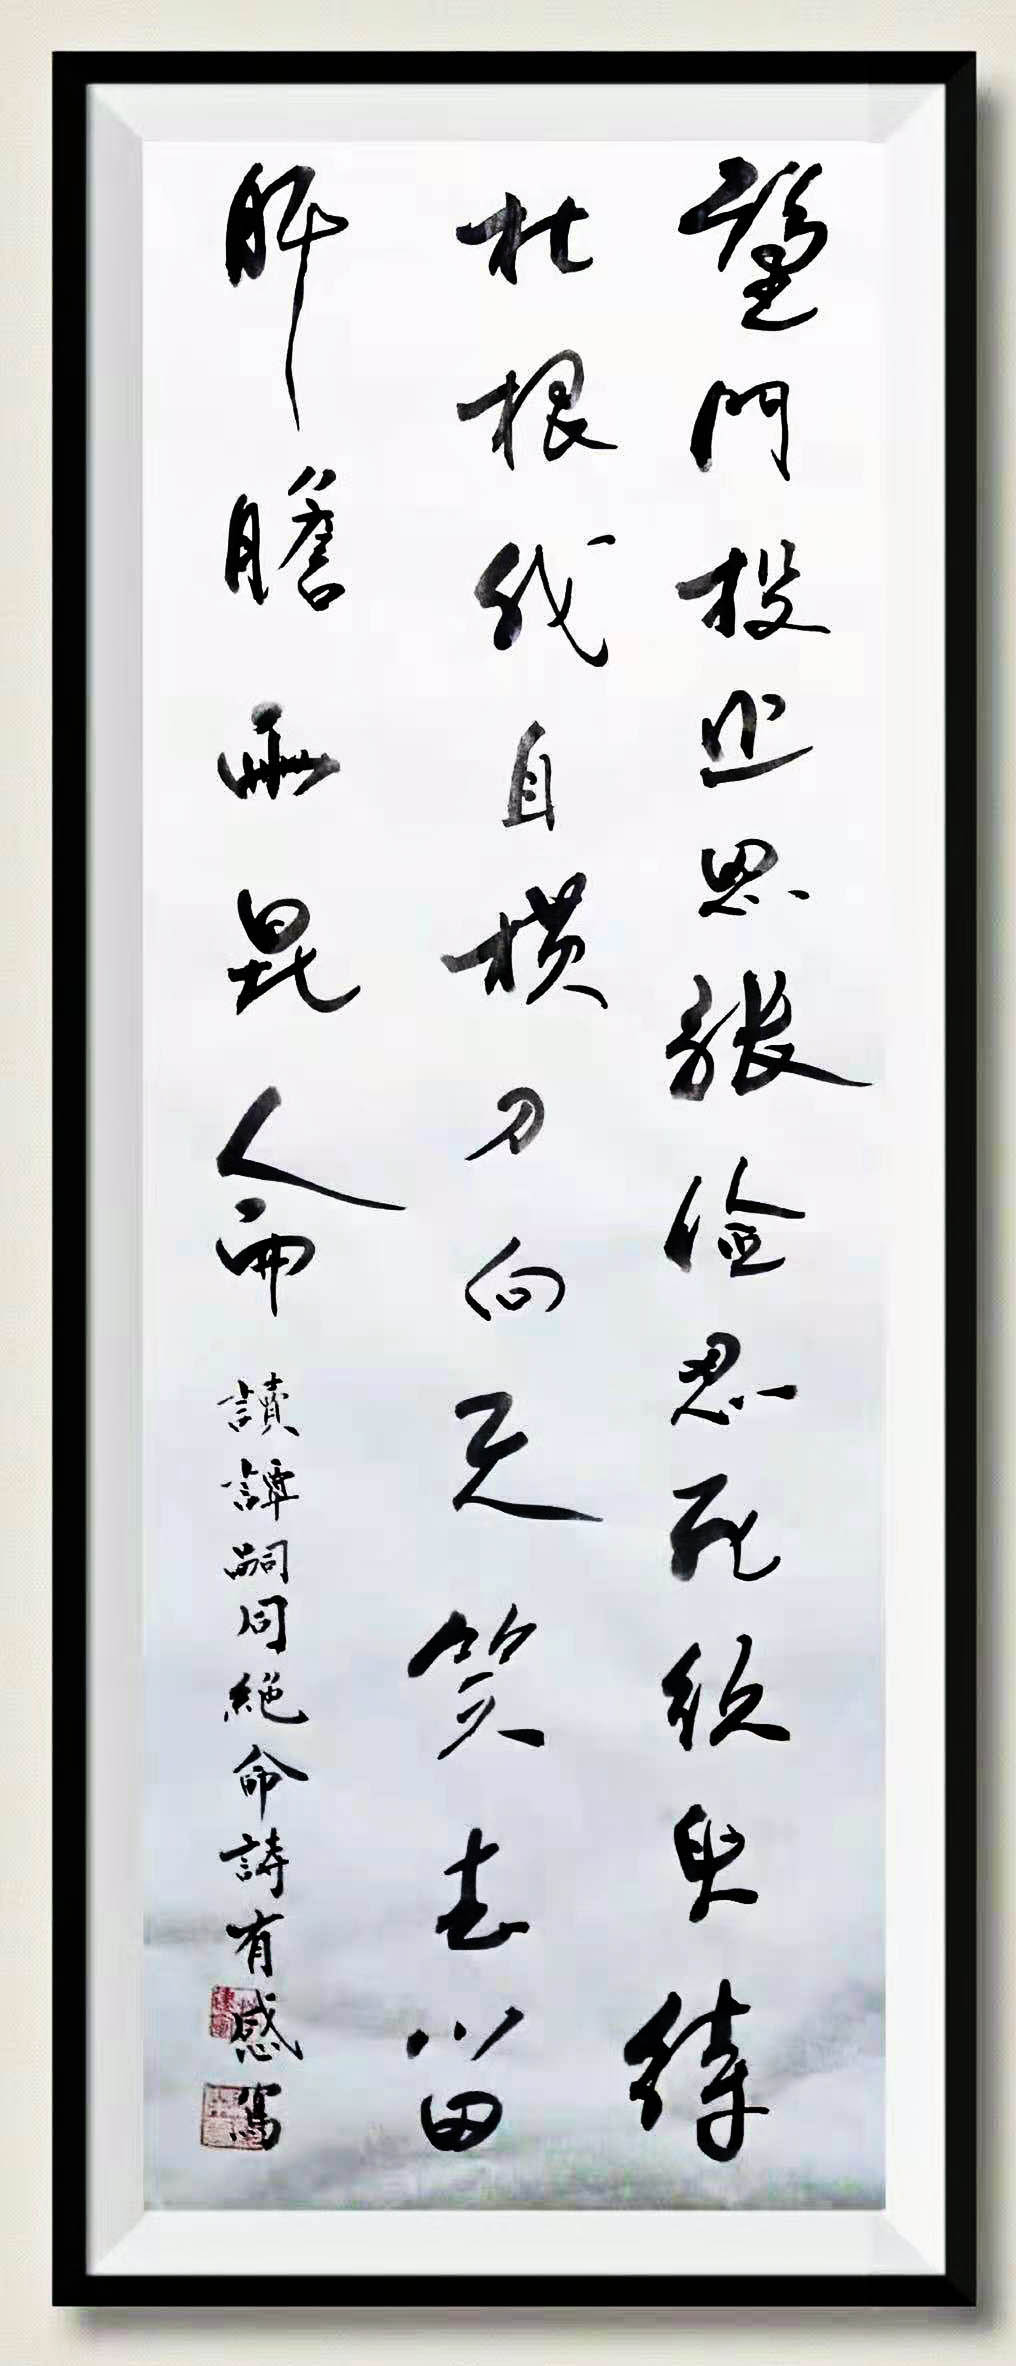 望門投止思張儉忍死須臾待
杜根我自橫刀向天笑去留
肝膽兩昆侖
讀譚嗣同絕命詩有感寫